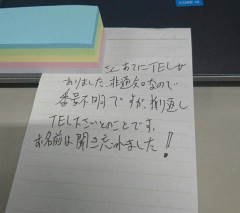 あてにTELが
ありました。非通知なので
番号不明ですが、折返し
TEL下さいとのことです。
お名前は聞き忘れました!